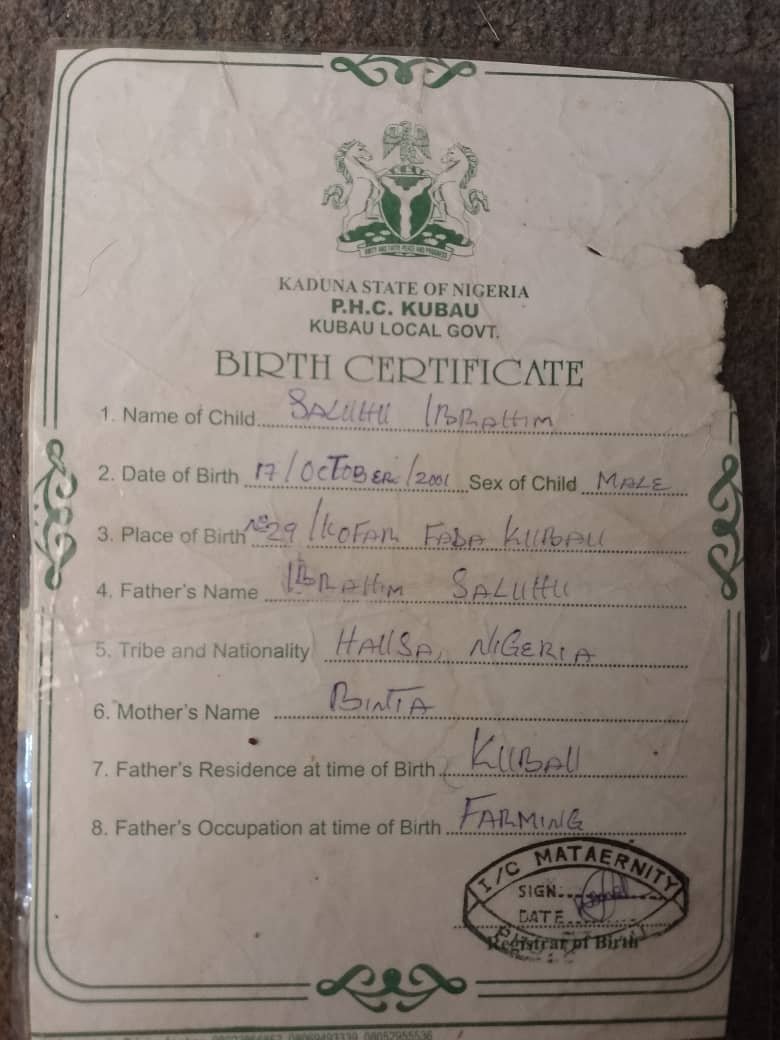 UNITY AND FAITH PEACE AND PROGRESS
KADUNA STATE OF NIGERIA
P.H.C. KUBAU
KUBAU LOCAL GOVT.
BIRTH CERTIFICATE
1. Name of Child SALUHU IBRAHIM
2. Date of Birth 17/OCTOBER/2001 Sex of Child MALE
3. Place of Birth No 29/KOFAR FADA KUBAU
4. Father's Name IBRAHIM SALUHU
5. Tribe and Nationality HAUSA, NIGERIA
6. Mother's Name BINTA
7. Father's Residence at time of Birth KUBAU
8. Father's Occupation at time of Birth FARMING
I/C MATAERNITY
SIGN.
DATE
Registrar of Birth